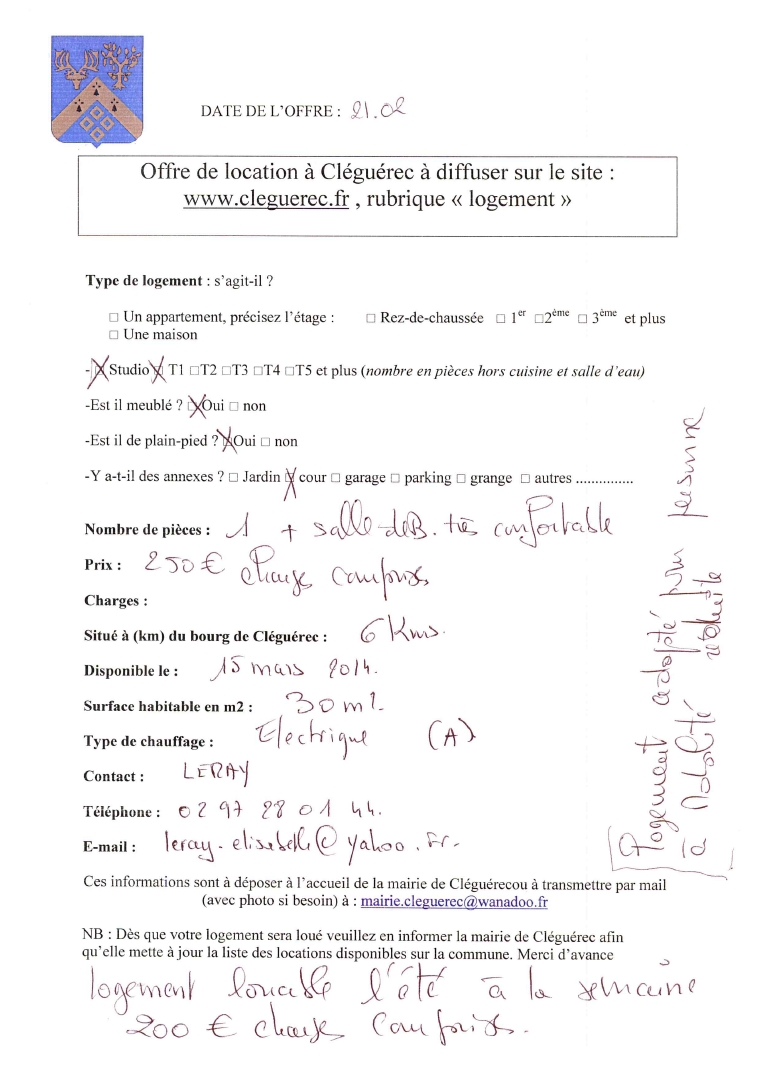 DATE DE L'OFFRE : 21.02
Offre de location à Cléguérec à diffuser sur le site :
www.cleguerec.fr , rubrique « logement »
Type de logement : s'agit-il ?
□ Un appartement, précisez l'étage : □ Rez-de-chaussée □ 1er □2ème □ 3ème et plus
□ Une maison
-☒ Studio ☒ T1 □T2 □T3 □T4 □T5 et plus (nombre en pièces hors cuisine et salle d'eau)
-Est il meublé ? ☒Oui □ non
-Est il de plain-pied ? ☒Oui □ non
-Y a-t-il des annexes ? □ Jardin ☒ cour □ garage □ parking □ grange □ autres ...............
Nombre de pièces : 1 + salle de B. très confortable
Prix : 250 € charges comprises
Charges :
Situé à (km) du bourg de Cléguérec : 6 Kms.
Disponible le : 15 mars 2014.
Surface habitable en m2 : 30 m2.
Type de chauffage : Electrique (A)
Contact : LERAY
Téléphone : 02 97 28 01 44.
E-mail : leray-elisabelle@yahoo.fr.
logement adapté pour personne
à mobilité réduite
Ces informations sont à déposer à l'accueil de la mairie de Cléguérecou à transmettre par mail
(avec photo si besoin) à : mairie.cleguerec@wanadoo.fr
NB : Dès que votre logement sera loué veuillez en informer la mairie de Cléguérec afin
qu'elle mette à jour la liste des locations disponibles sur la commune. Merci d'avance
logement louable l'été à la semaine
200 € charges comprises.